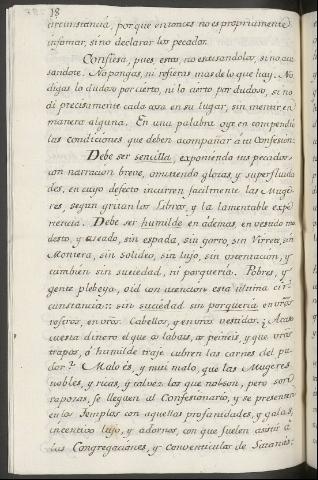 18
circunstancia, porque entonces no es propriamente
infamar, sino declarar los pecados.
Confiesa, pues, estos, no escusandolos, si no acu
sandote. No pongas, ni refieras mas de lo que hay. No
digas lo dudoso por cierto, ni lo cierto por dudoso, si no
di precisamente cada cosa en su lugar, sin mentir en
manera alguna. En una palabra oye en compendio
las condiciones que deben acompañar a tu Confesion:
Debe ser sencilla, exponiendo tus pecados,
con narracion breve, omitiendo glosas, y superfluida
des, en cuyo defecto incurren facilmente las Muge
res, segun gritan los Libros, y la lamentable expe
riencia. Debe ser humilde en ademas, en vestido mo
desto, y aseado, sin espada, sin gorro, sin Virrete, sin
Montera, sin solideo, sin lujo, sin ostentacion, y
tambien sin suciedad, ni porqueria. Pobres, y
gente plebeya, oid con atencion esta ultima cir
cunstancia:: sin suciedad sin porqueria en vr̃os
rostros, en vr̃os Cabellos, y en vr̃os vestidos. ¿Acaso
cuesta dinero el que os labeis, os peineis, y que vr̃os
trapos, ó humilde traje cubren las carnes del pu
dor? Malo es, y mui malo, que las Mugeres
nobles, y ricas, y talvez las que no lo son, pero son
raposas, se lleguen al Confesionario, y se presenten
en los Templos con aquellas profanidades, y galas,
incentivo lujo, y adornos, con que suelen asistir á
las Congregaciones, y Conventiculos de Satanás: